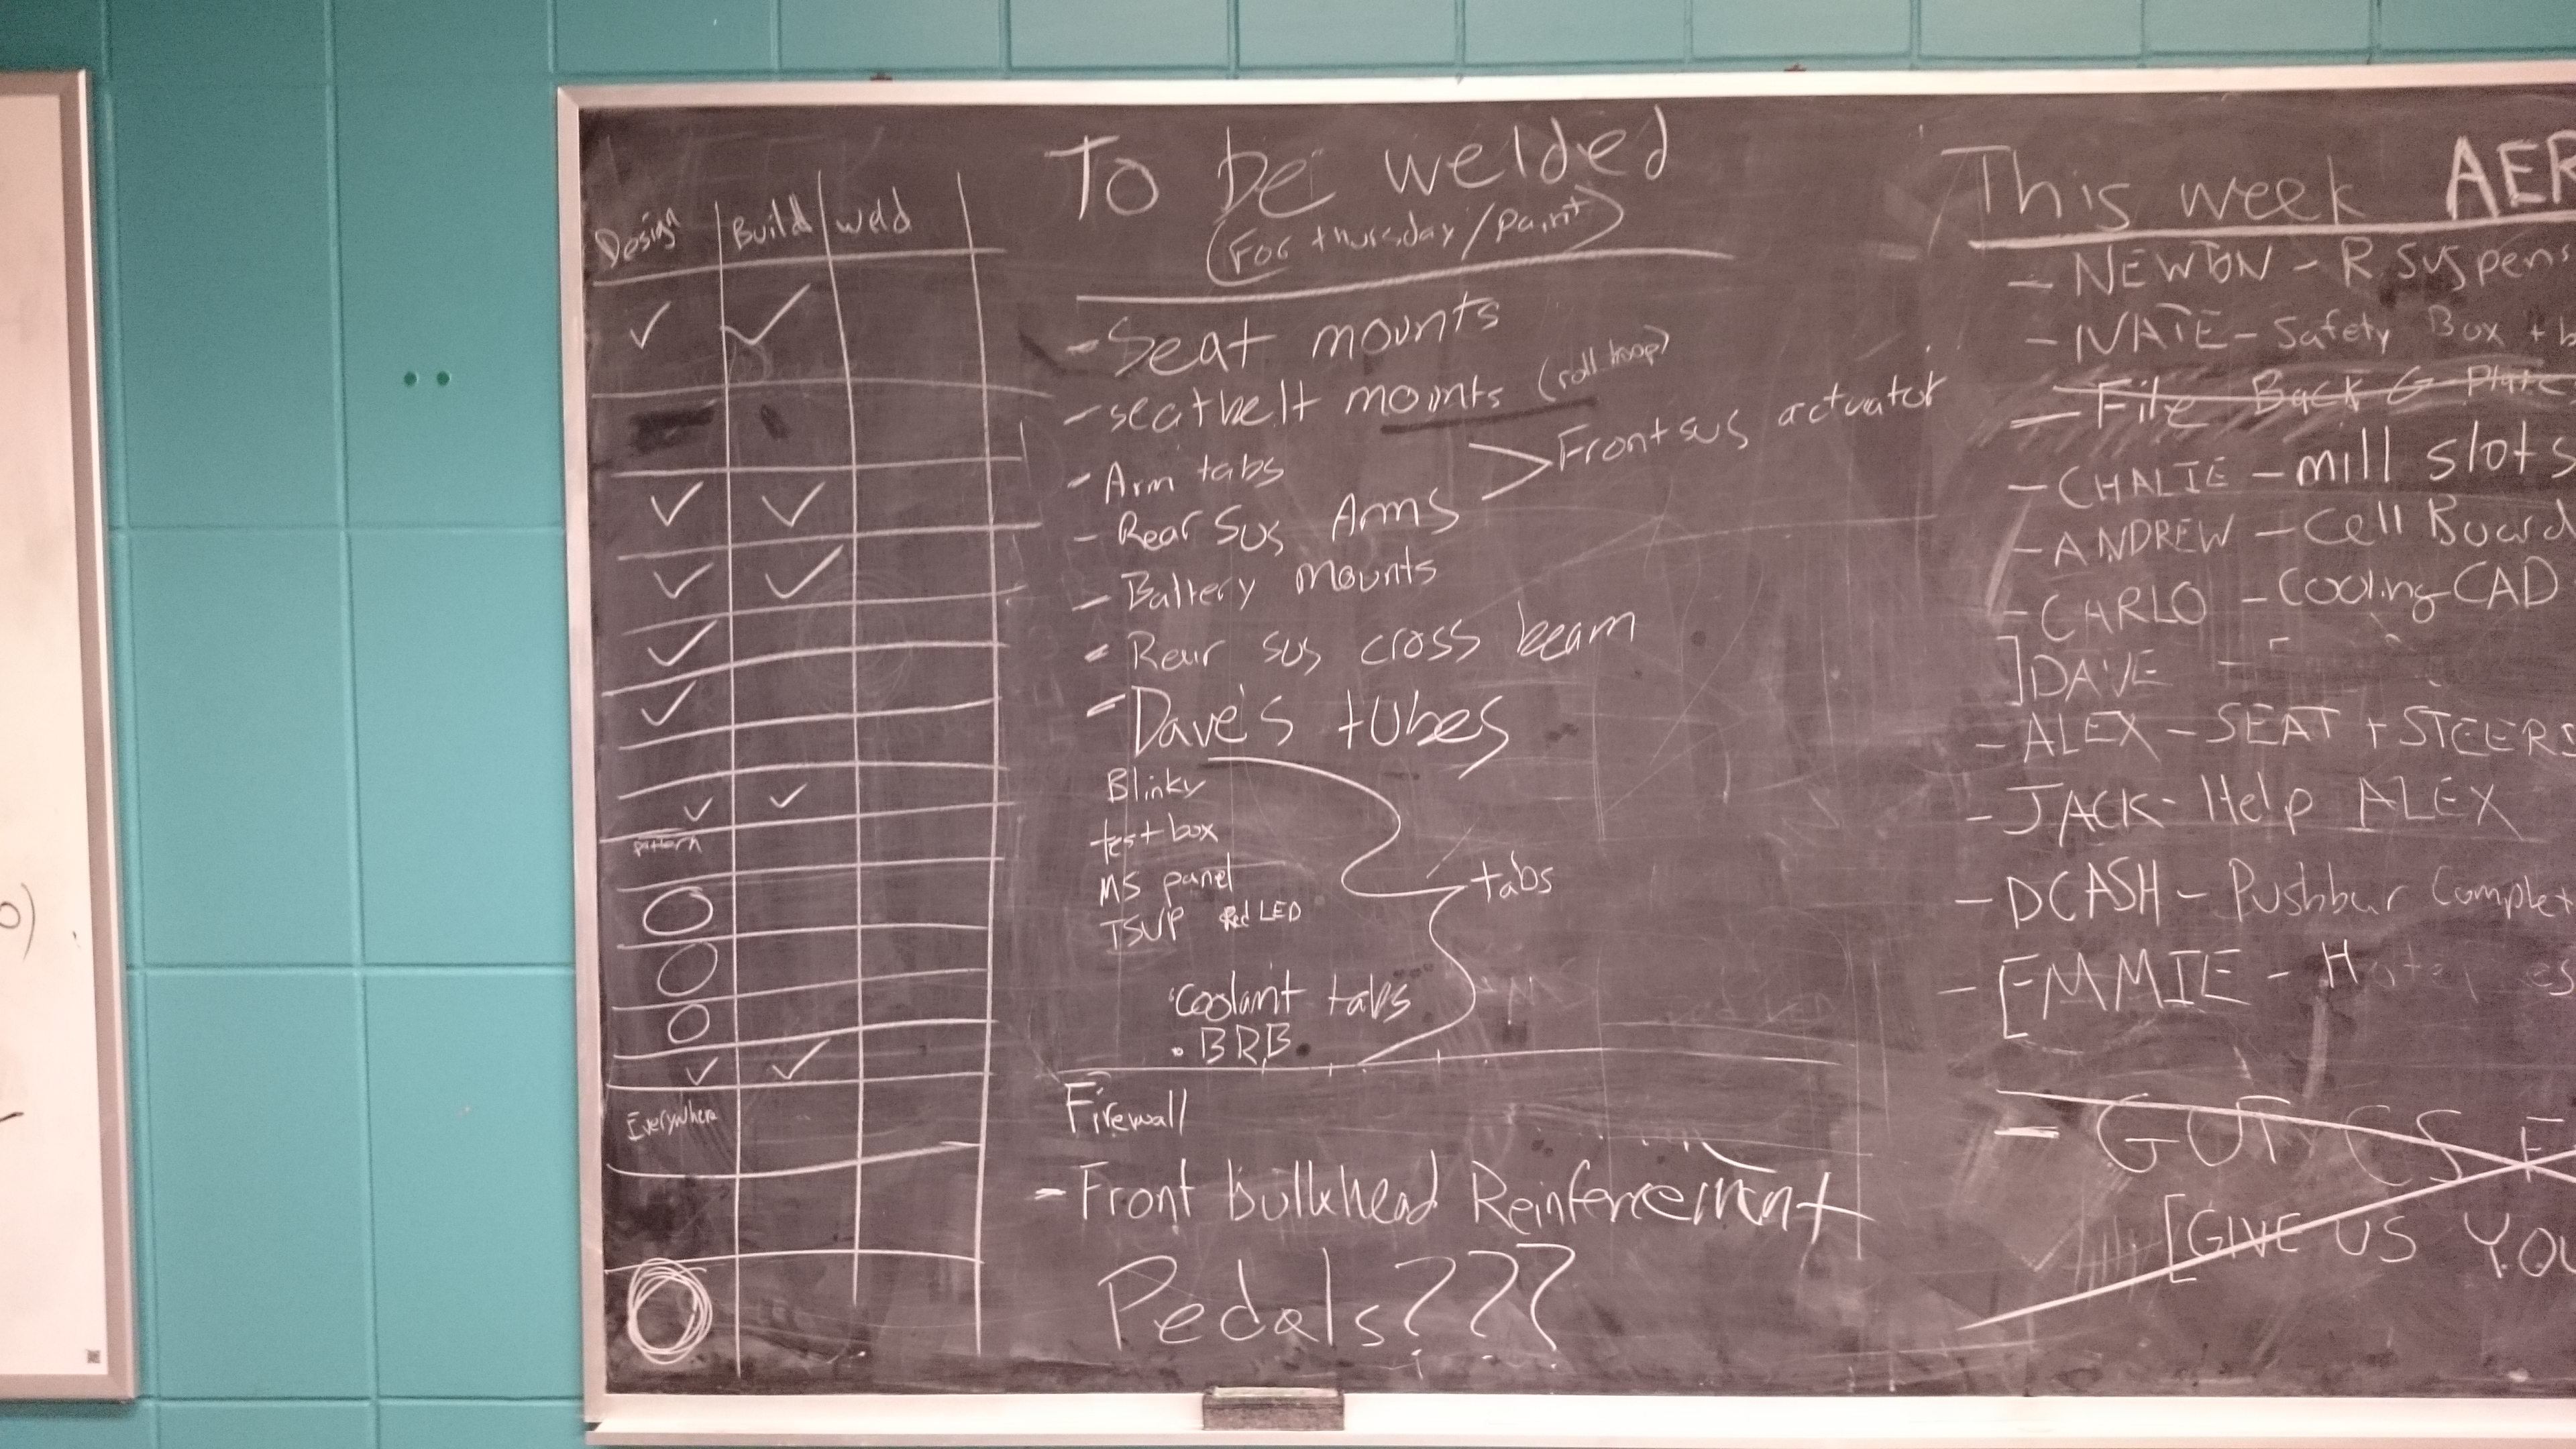 Design Build weld
pattern
Everywhere
To be welded
(For thursday/paint)
- Seat mounts
- seatbelt mounts (roll hoop)
- Arm tabs
- Rear Sus Arms
Front sus actuator
- Battery mounts
- Rear sus cross beam
- Dave's tubes
Blinky
test box
MS panel
TSVP Red LED
tabs
Coolant tabs
• BRB
Firewall
- Front bulkhead Reinforcement
Pedals???
This week AER
- NEWTON - R suspens
- NATE - Safety Box + b
- File Back G Plate
- CHALIE - mill slots
- ANDREW - Cell Board
- CARLO - Cooling CAD
]DAVE -
- ALEX - SEAT + STEERS
- JACK - Help ALEX
- DCASH - Pushbar Complet
- [EMMIE -
- GUT CS F
[GIVE US YOU
0)